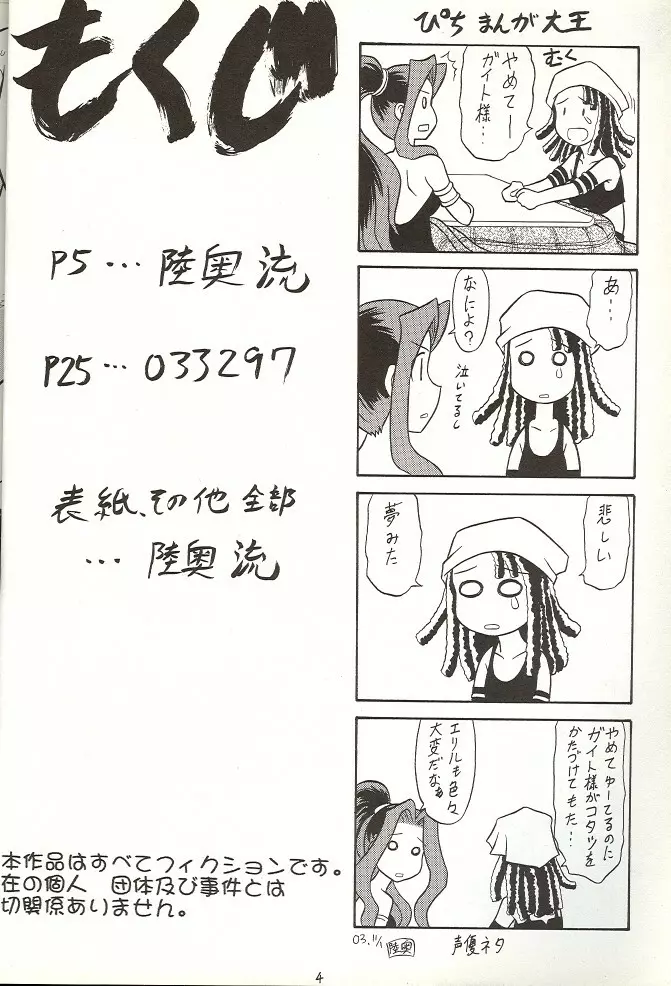 もくじ
P5…陸奥 流
P25…033297
表紙、その他 全部
…陸奥 流
本作品はすべてフィクションです。
在の個人 団体及び事件とは
切関係ありません。
ぴち まんが大王
むく
やめてー
ガイト様…
あ…
なによ?
泣いてるし
悲しい
夢みた
やめてゅーてるのに
ガイト様がコタツを
かたづけてもた…
エリルも色々
大変だなぁ
03.11/1
陸奥
声優ネタ
4